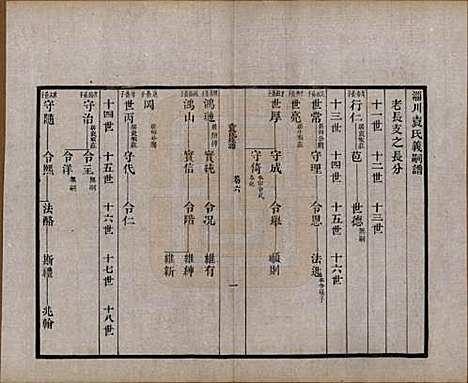 淄川袁氏義嗣譜
老長支之長分
十一世 十二世 十三世
行仁 苞 世德 無嗣
十三世 十四世 十五世 十六世
世常 守理 令恩 法選
世亮
世厚 守成 令舉 順則
守倚
袁氏家譜 卷六 一
鴻璉 實純 令况 維有
鴻山 實信 令階 維紳
維新
岡
世丙 守代 令仁
十四世 十五世 十六世 十七世 十八世
守治 令王 無嗣
令洋 無嗣
守隨 令熙 法酪 斯禮 兆翰